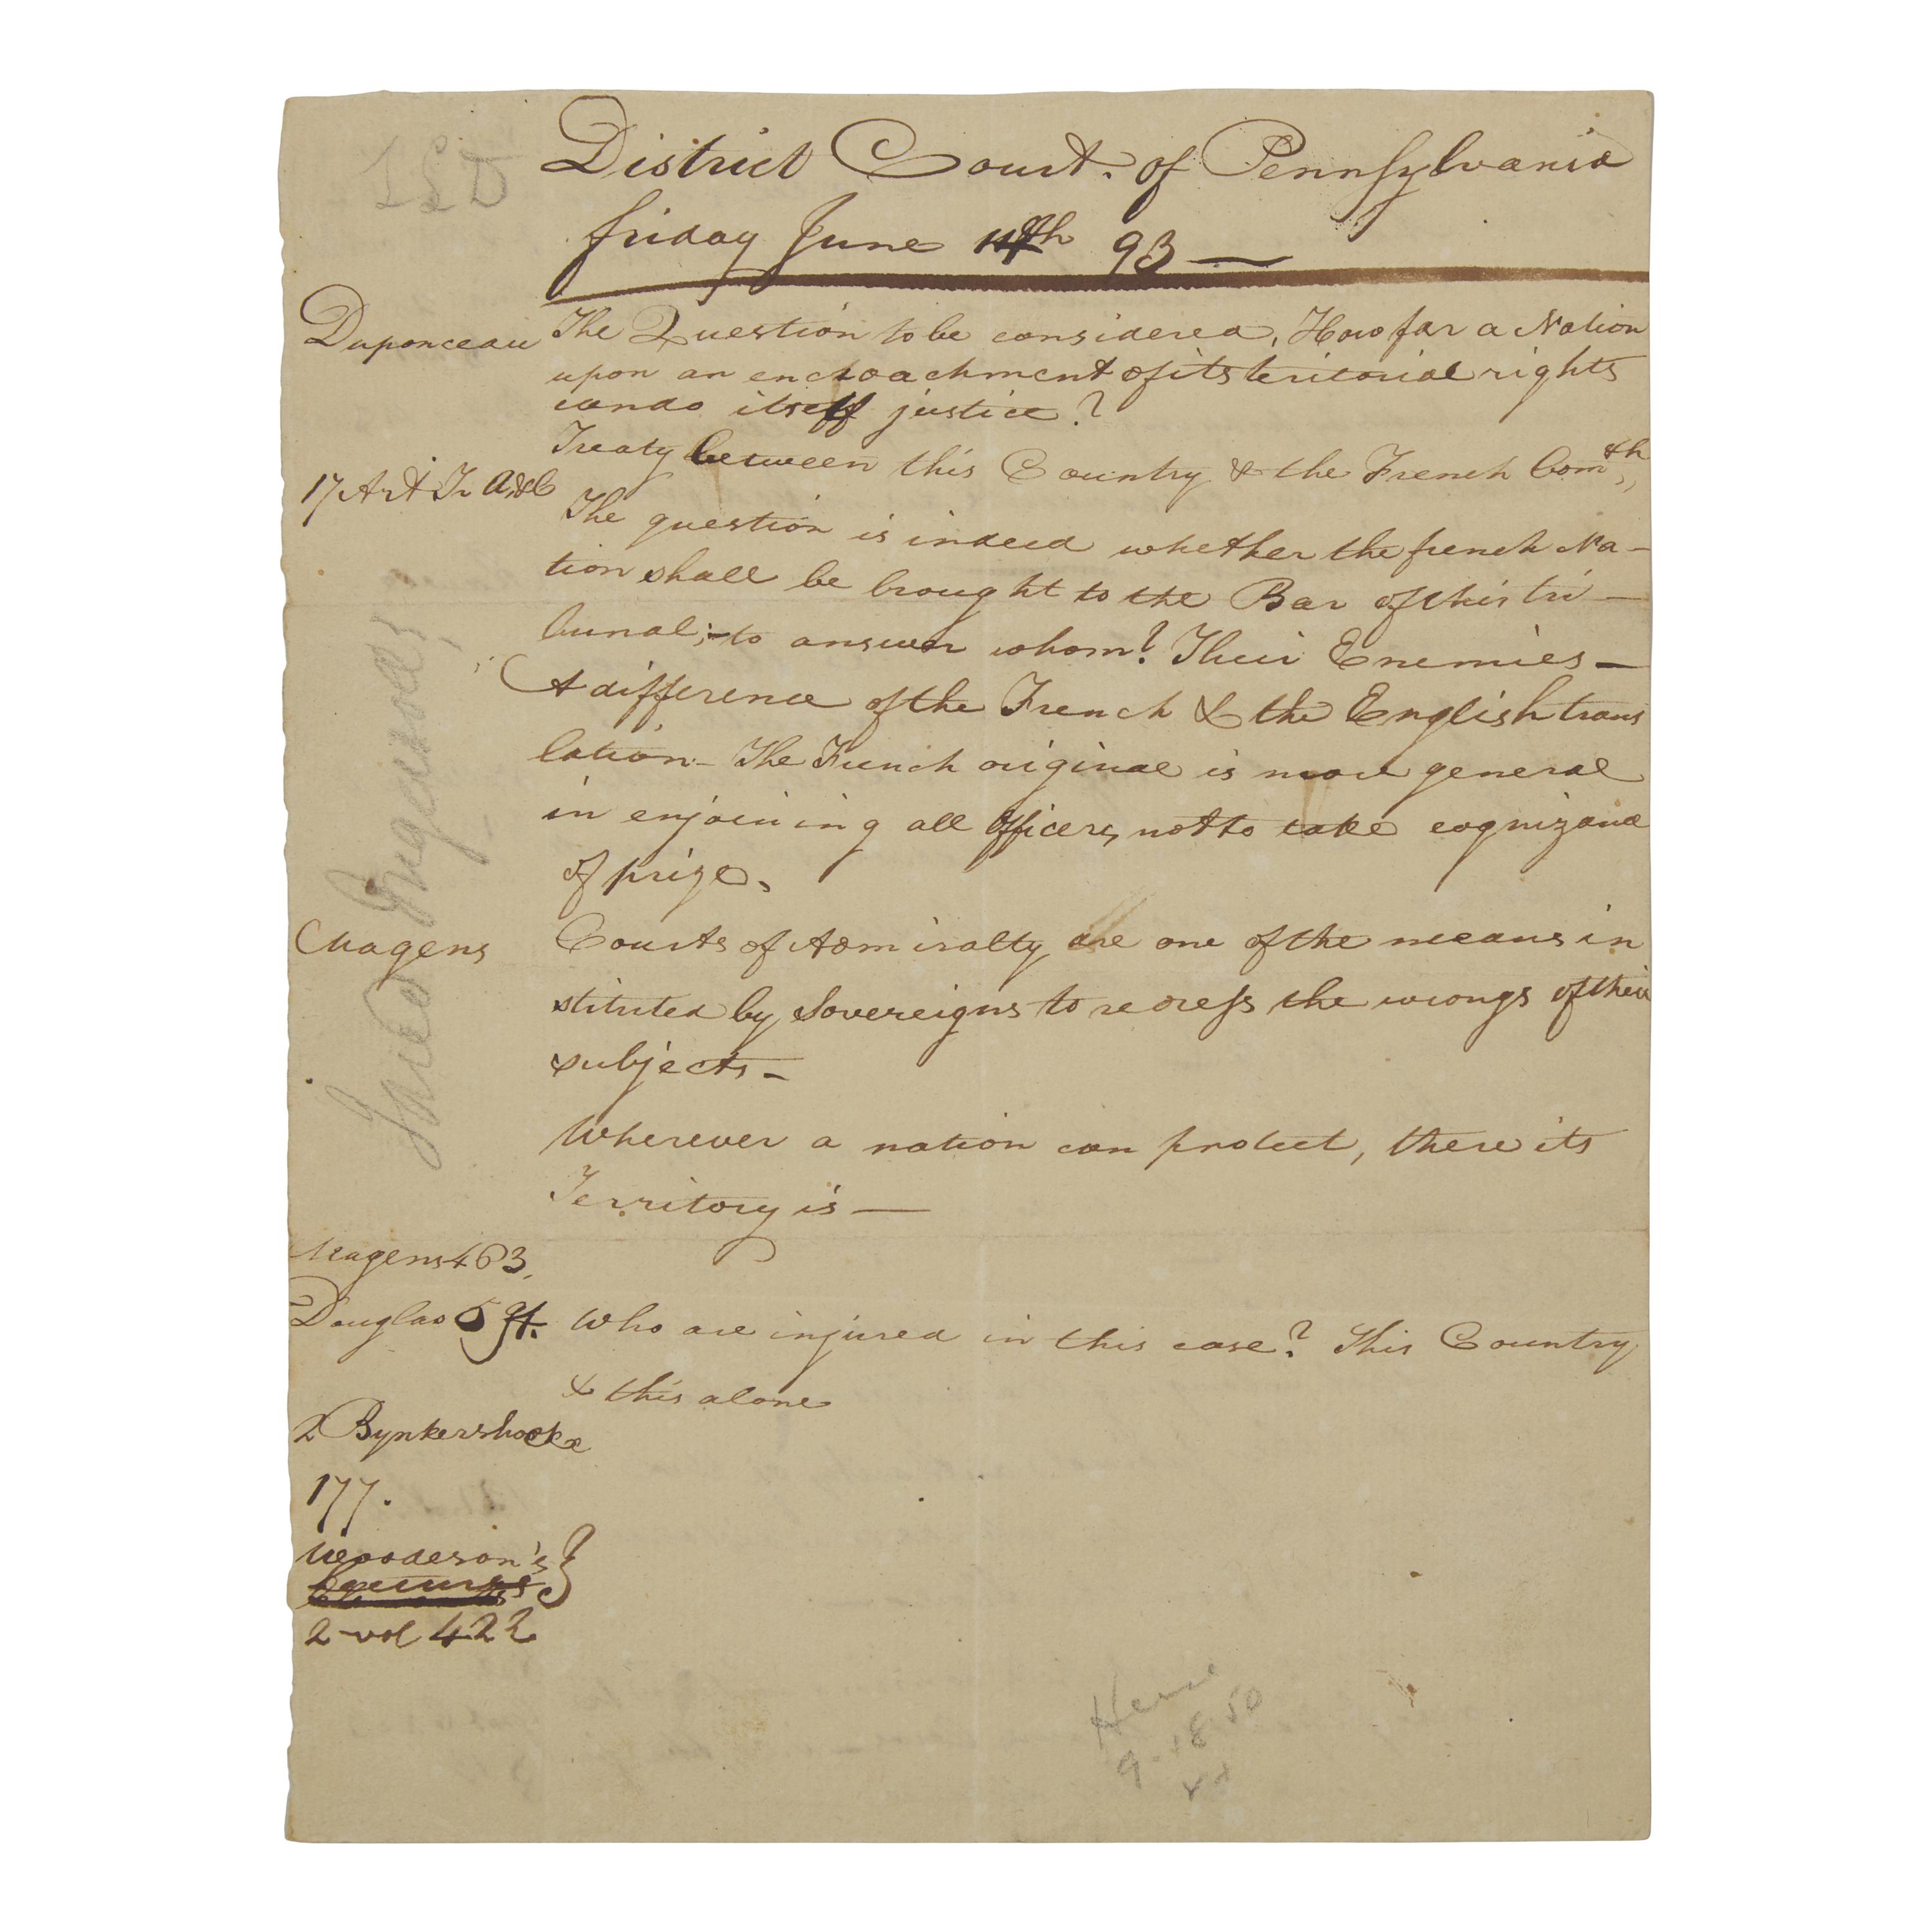 District Court of Pennsylvania
friday June 14th 93 —
Duponceau
The Question to be considered, How far a Nation
upon an encroachment of its teritorial rights
can do itself justice?
17 Art Tr A&C
Treaty between this Country & the French Comth,,
The question is indeed whether the french Na-
tion shall be brought to the Bar of this tri-
bunal;-to answer whom? Their Enemies-
A difference of the French & the English trans
lation- The French original is more general
in enjoining all officers, not to take cognizance
of prize.
Magens
Courts of Admiralty are one of the means in
stituted by Sovereigns to redress the wrongs of their
subjects-
Wherever a nation can protect, there its
Territory is —
Magens 463.
Douglas
Who are injured in this case? This Country
& this alone
2 Bynkershoeke
177.
Woodeson's }
Lectures
2 vol 422
Jared Ingersoll
9-18-50